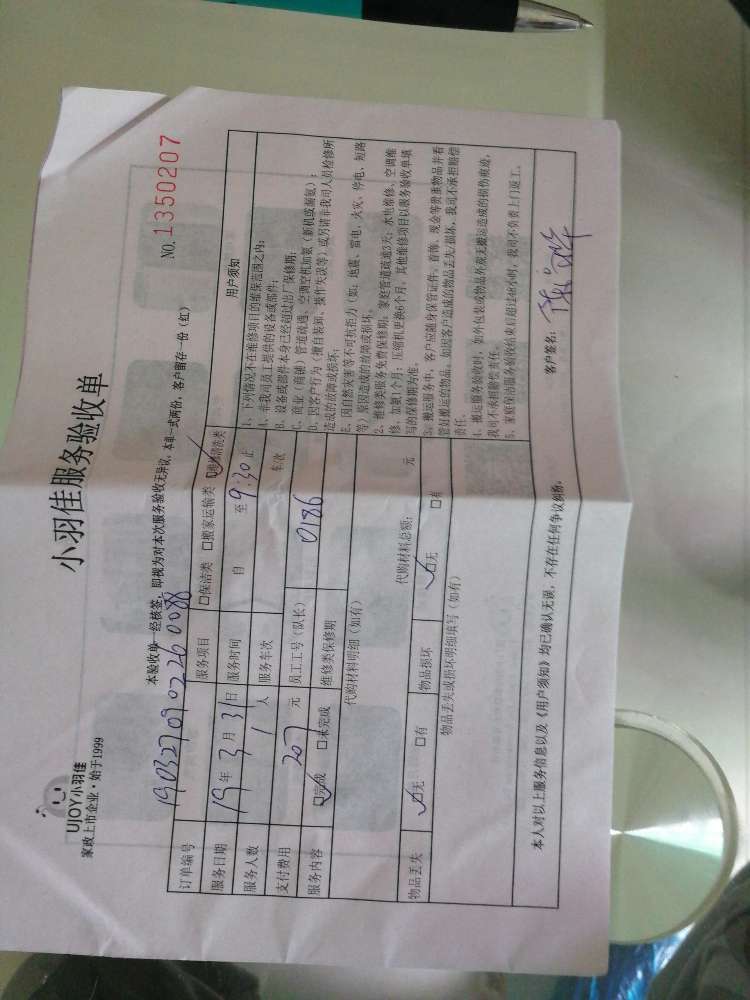 UJOY小羽佳
家政上市企业·始于1999
小羽佳服务验收单
本验收单一经核签，即视为对本次服务验收无异议，本单一式两份，客户留存一份（红）
NO. 1350207
订单编号 190327090226 0088
服务项目 □保洁类 □搬家运输类 ☑维修清洗类
服务日期 19 年 3 月 31 日 服务时间 自 至 9:30 止
服务人数 1 人 服务车次 车次
支付费用 207 元 员工工号（队长） 0186
服务内容 ☑完成 □未完成 维修类保修期
代购材料明细（如有）
代购材料总额： 元
物品丢失 ☑无 □有 物品损坏 ☑无 □有
物品丢失或损坏明细填写（如有）
用户须知
1、下列情况不在维修项目的维保范围之内：
A、非我司员工提供的设备或部件；
B、设备或部件本身已经超过出厂保修期；
C、商业（商铺）管道疏通、空调空机加氨（新机或漏氨）；
D、因客户行为（擅自装卸、操作失误等）或另请非我司人员检修所
造成的故障或损坏；
E、因自然灾害等不可抗拒力（如：地震、雷电、火灾、停电、短路
等）原因造成的故障或损坏。
2、维修类服务免费保修期：家庭管道疏通3天；水电维修、空调维
修、加氨1个月；压缩机更换6个月，其他维修项目以服务验收单填
写的保修期为准。
3、搬运服务中，客户应随身保管证件、首饰、现金等贵重物品并看
管好搬运的物品，如因客户造成的物品丢失/损坏，我司不承担赔偿
责任。
4、搬运服务验收时，如外包装或物品外观无搬运造成的损伤痕迹，
我司不承担赔偿责任。
5、家庭保洁服务验收结束后超过48小时，我司不负责上门返工。
本人对以上服务信息以及《用户须知》均已确认无误，不存在任何争议纠纷。
客户签名：